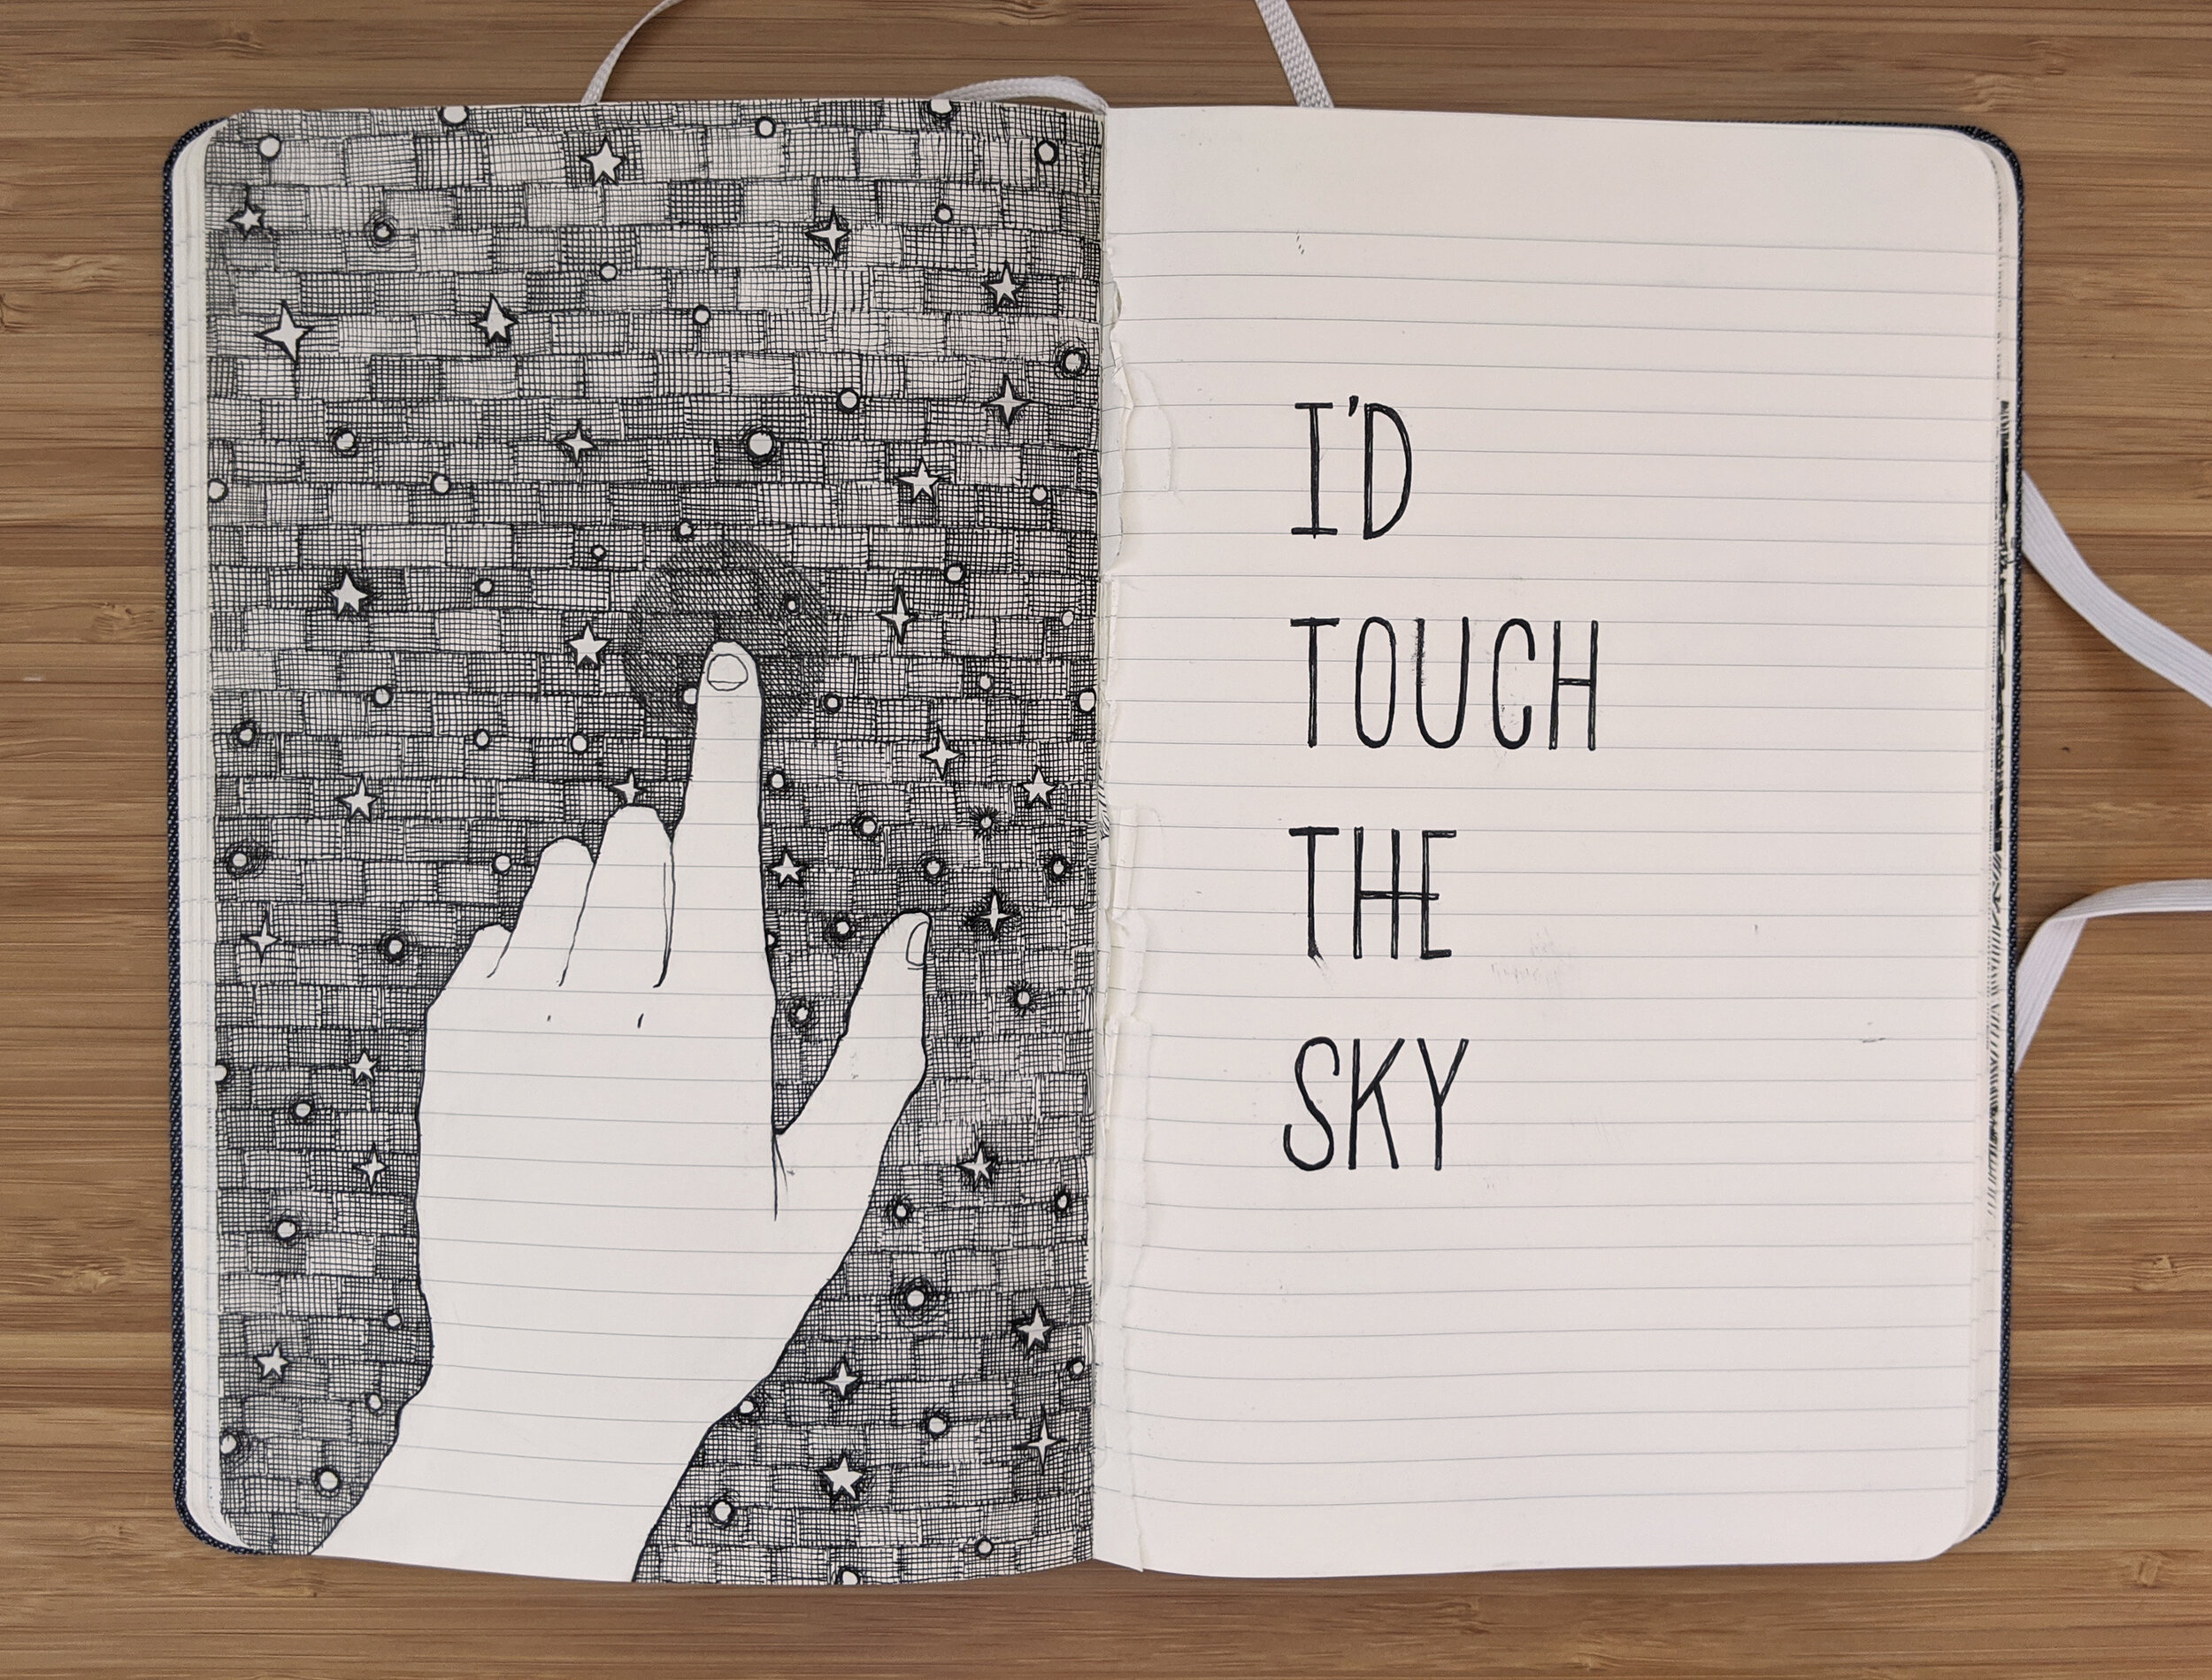 I'D
TOUCH
THE
SKY